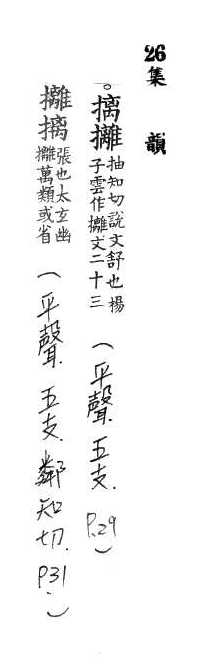 26
集韻
。摛攡抽知切說文舒也楊
子雲作攡文二十三(平聲.五支.P.29)
攡摛張也太玄幽
攡萬類或省(平聲.五支.鄰知切.P31.)